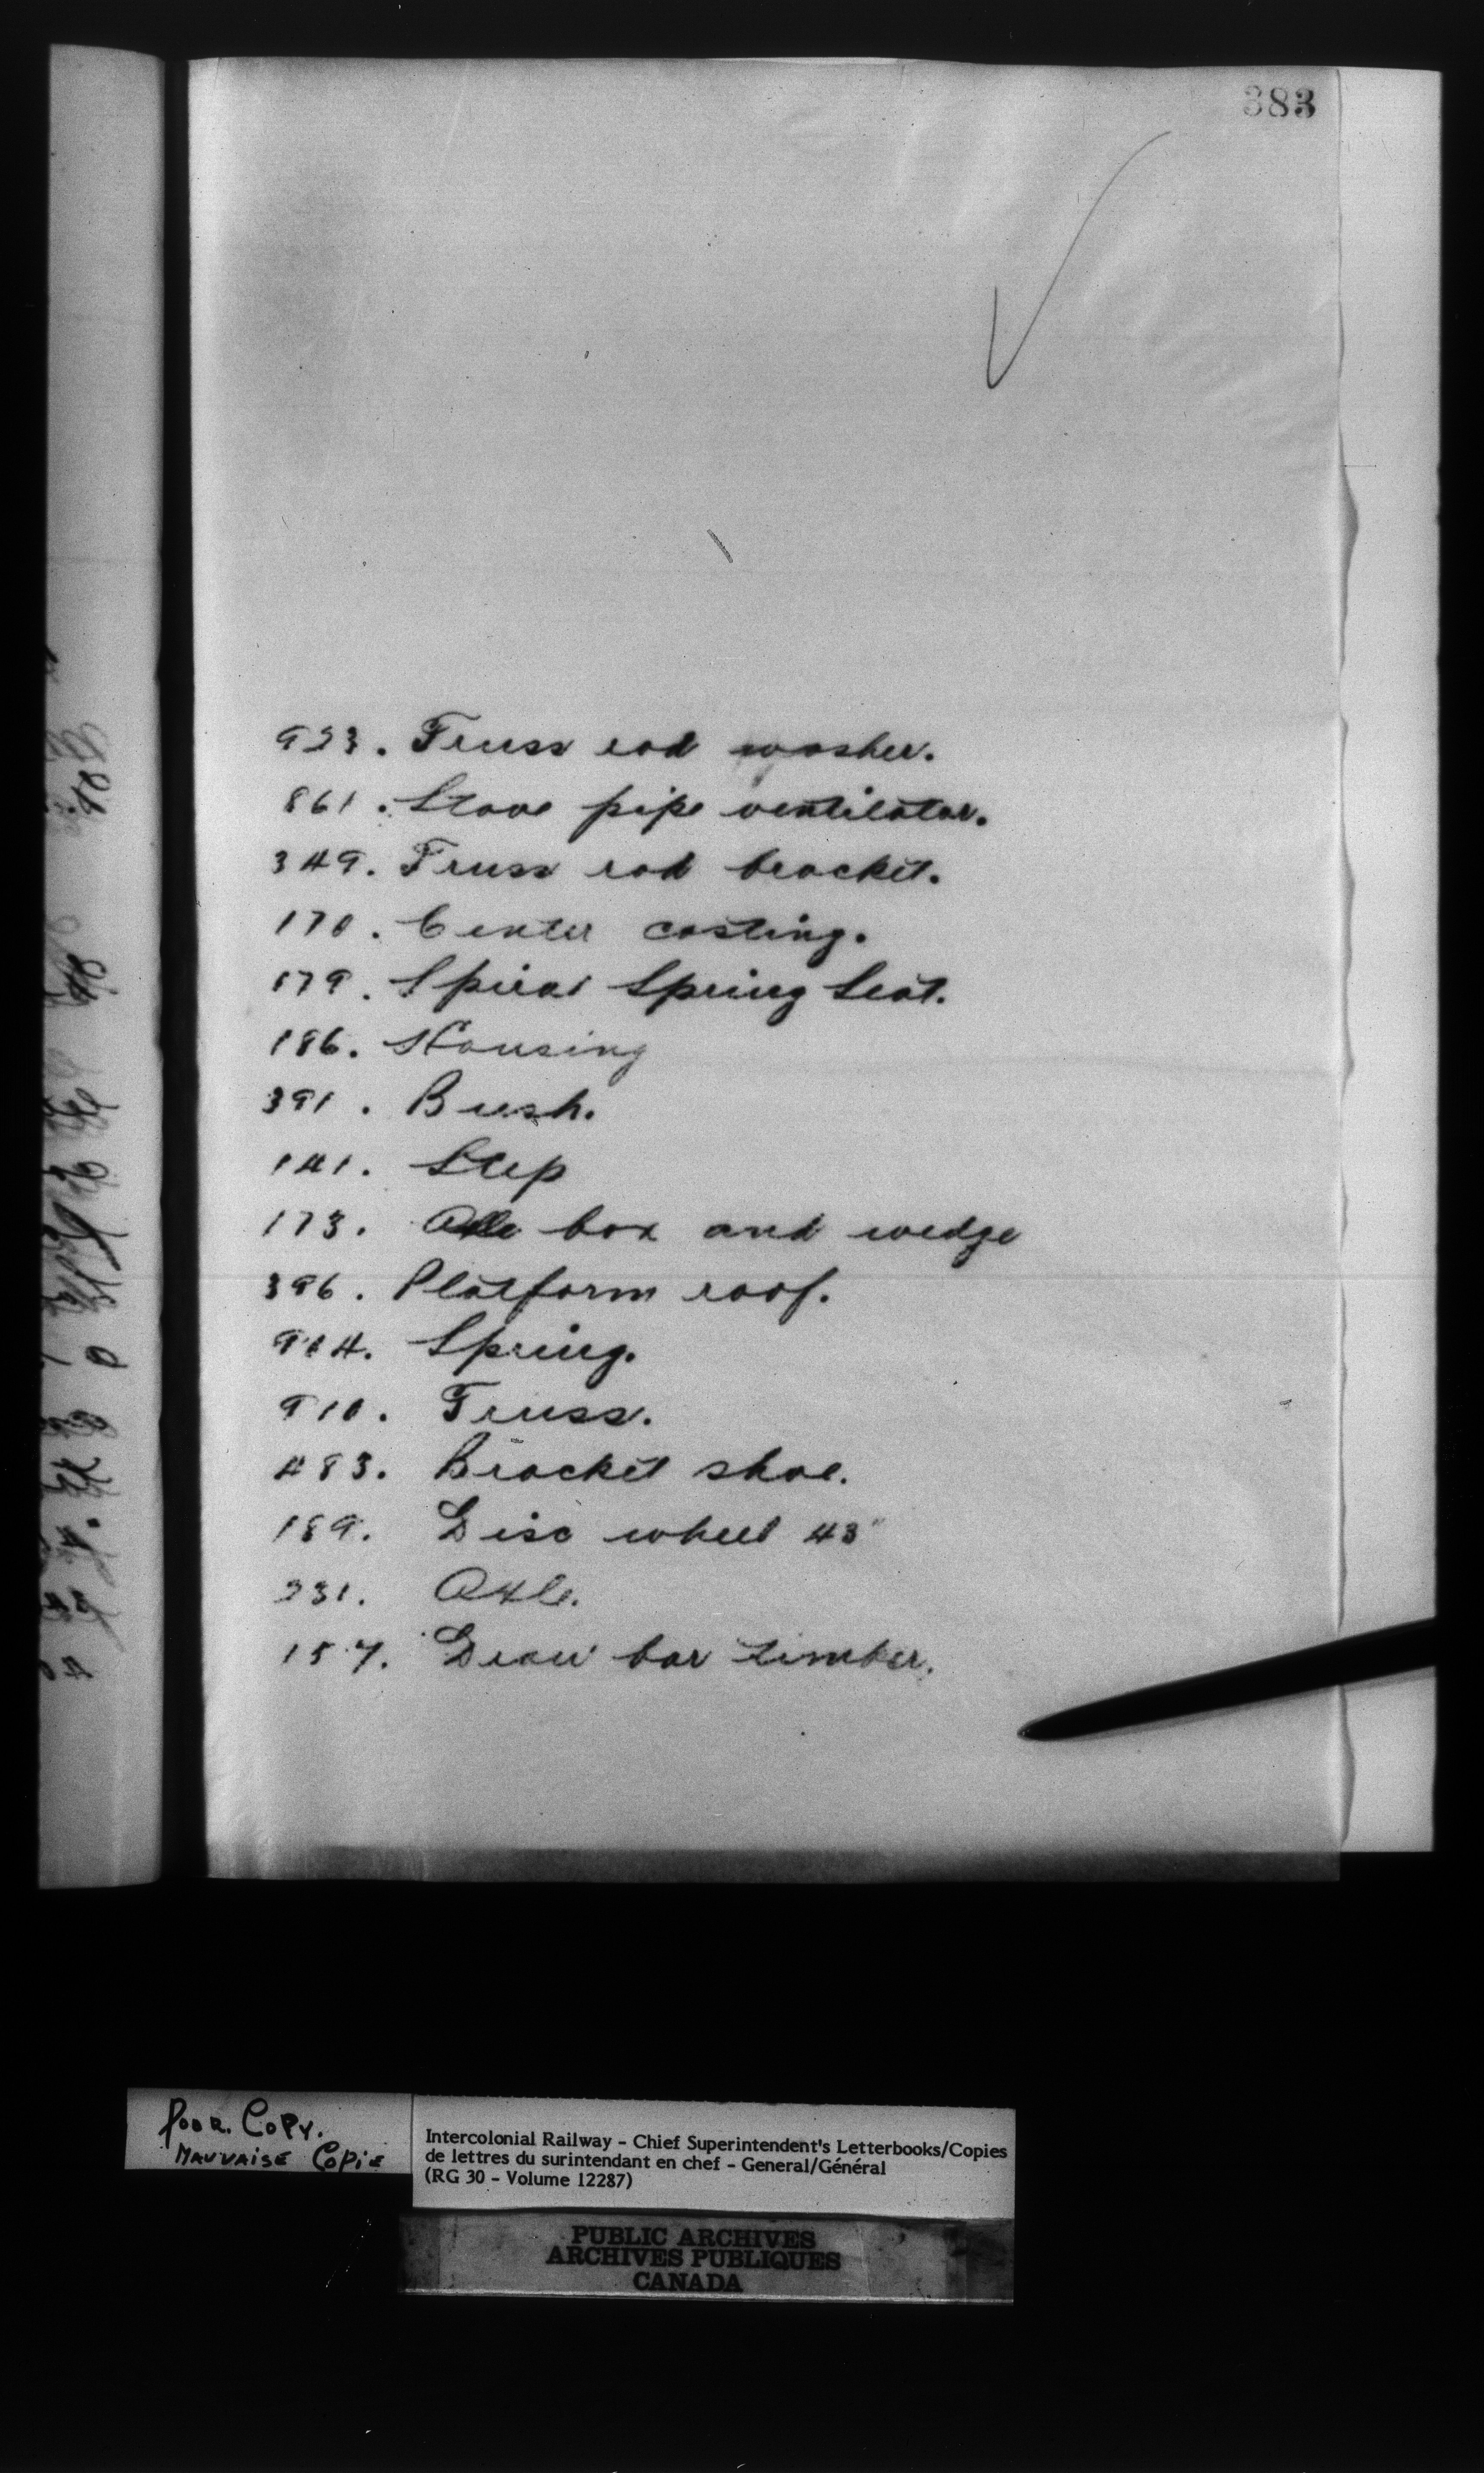 383
923. Truss rod washer.
861. Stove pipe ventilator.
349. Truss rod bracket.
170. Center casting.
179. Spiral Spring Seat.
186. Housing
391. Bush.
141. Step
173. Axle box and wedge
396. Platform roof.
914. Spring.
910. Truss.
483. Bracket shoe.
189. Disc wheel 43"
331. Axle.
157. Draw bar timber.
POOR. COPY.
MAUVAISE COPIE
Intercolonial Railway - Chief Superintendent's Letterbooks/Copies
de lettres du surintendant en chef - General/Général
(RG 30 - Volume 12287)
PUBLIC ARCHIVES
ARCHIVES PUBLIQUES
CANADA